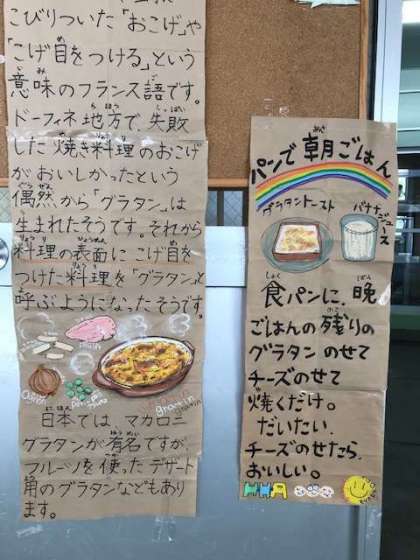 こびりついた「おこげ」や
「こげ目をつける」という
意味のフランス語です。
ドーフィネ地方で、失敗
した焼き料理のおこげ
がおいしかったという
偶然から「グラタン」は
生まれたそうです。それから
料理の表面にこげ目を
つけた料理を「グラタン」と
呼ぶようになったそうです。
Onion
gratin
日本では、マカロニ
グラタンが有名ですが、
フルーツを使ったデザート
角のグラタンなどもあり
ます。
パンで朝ごはん
グラタントースト
バナナジュース
食パンに、晩
ごはんの残りの
グラタンのせて
チーズのせて
焼くだけ。
だいたい、
チーズのせたら、
おいしい。